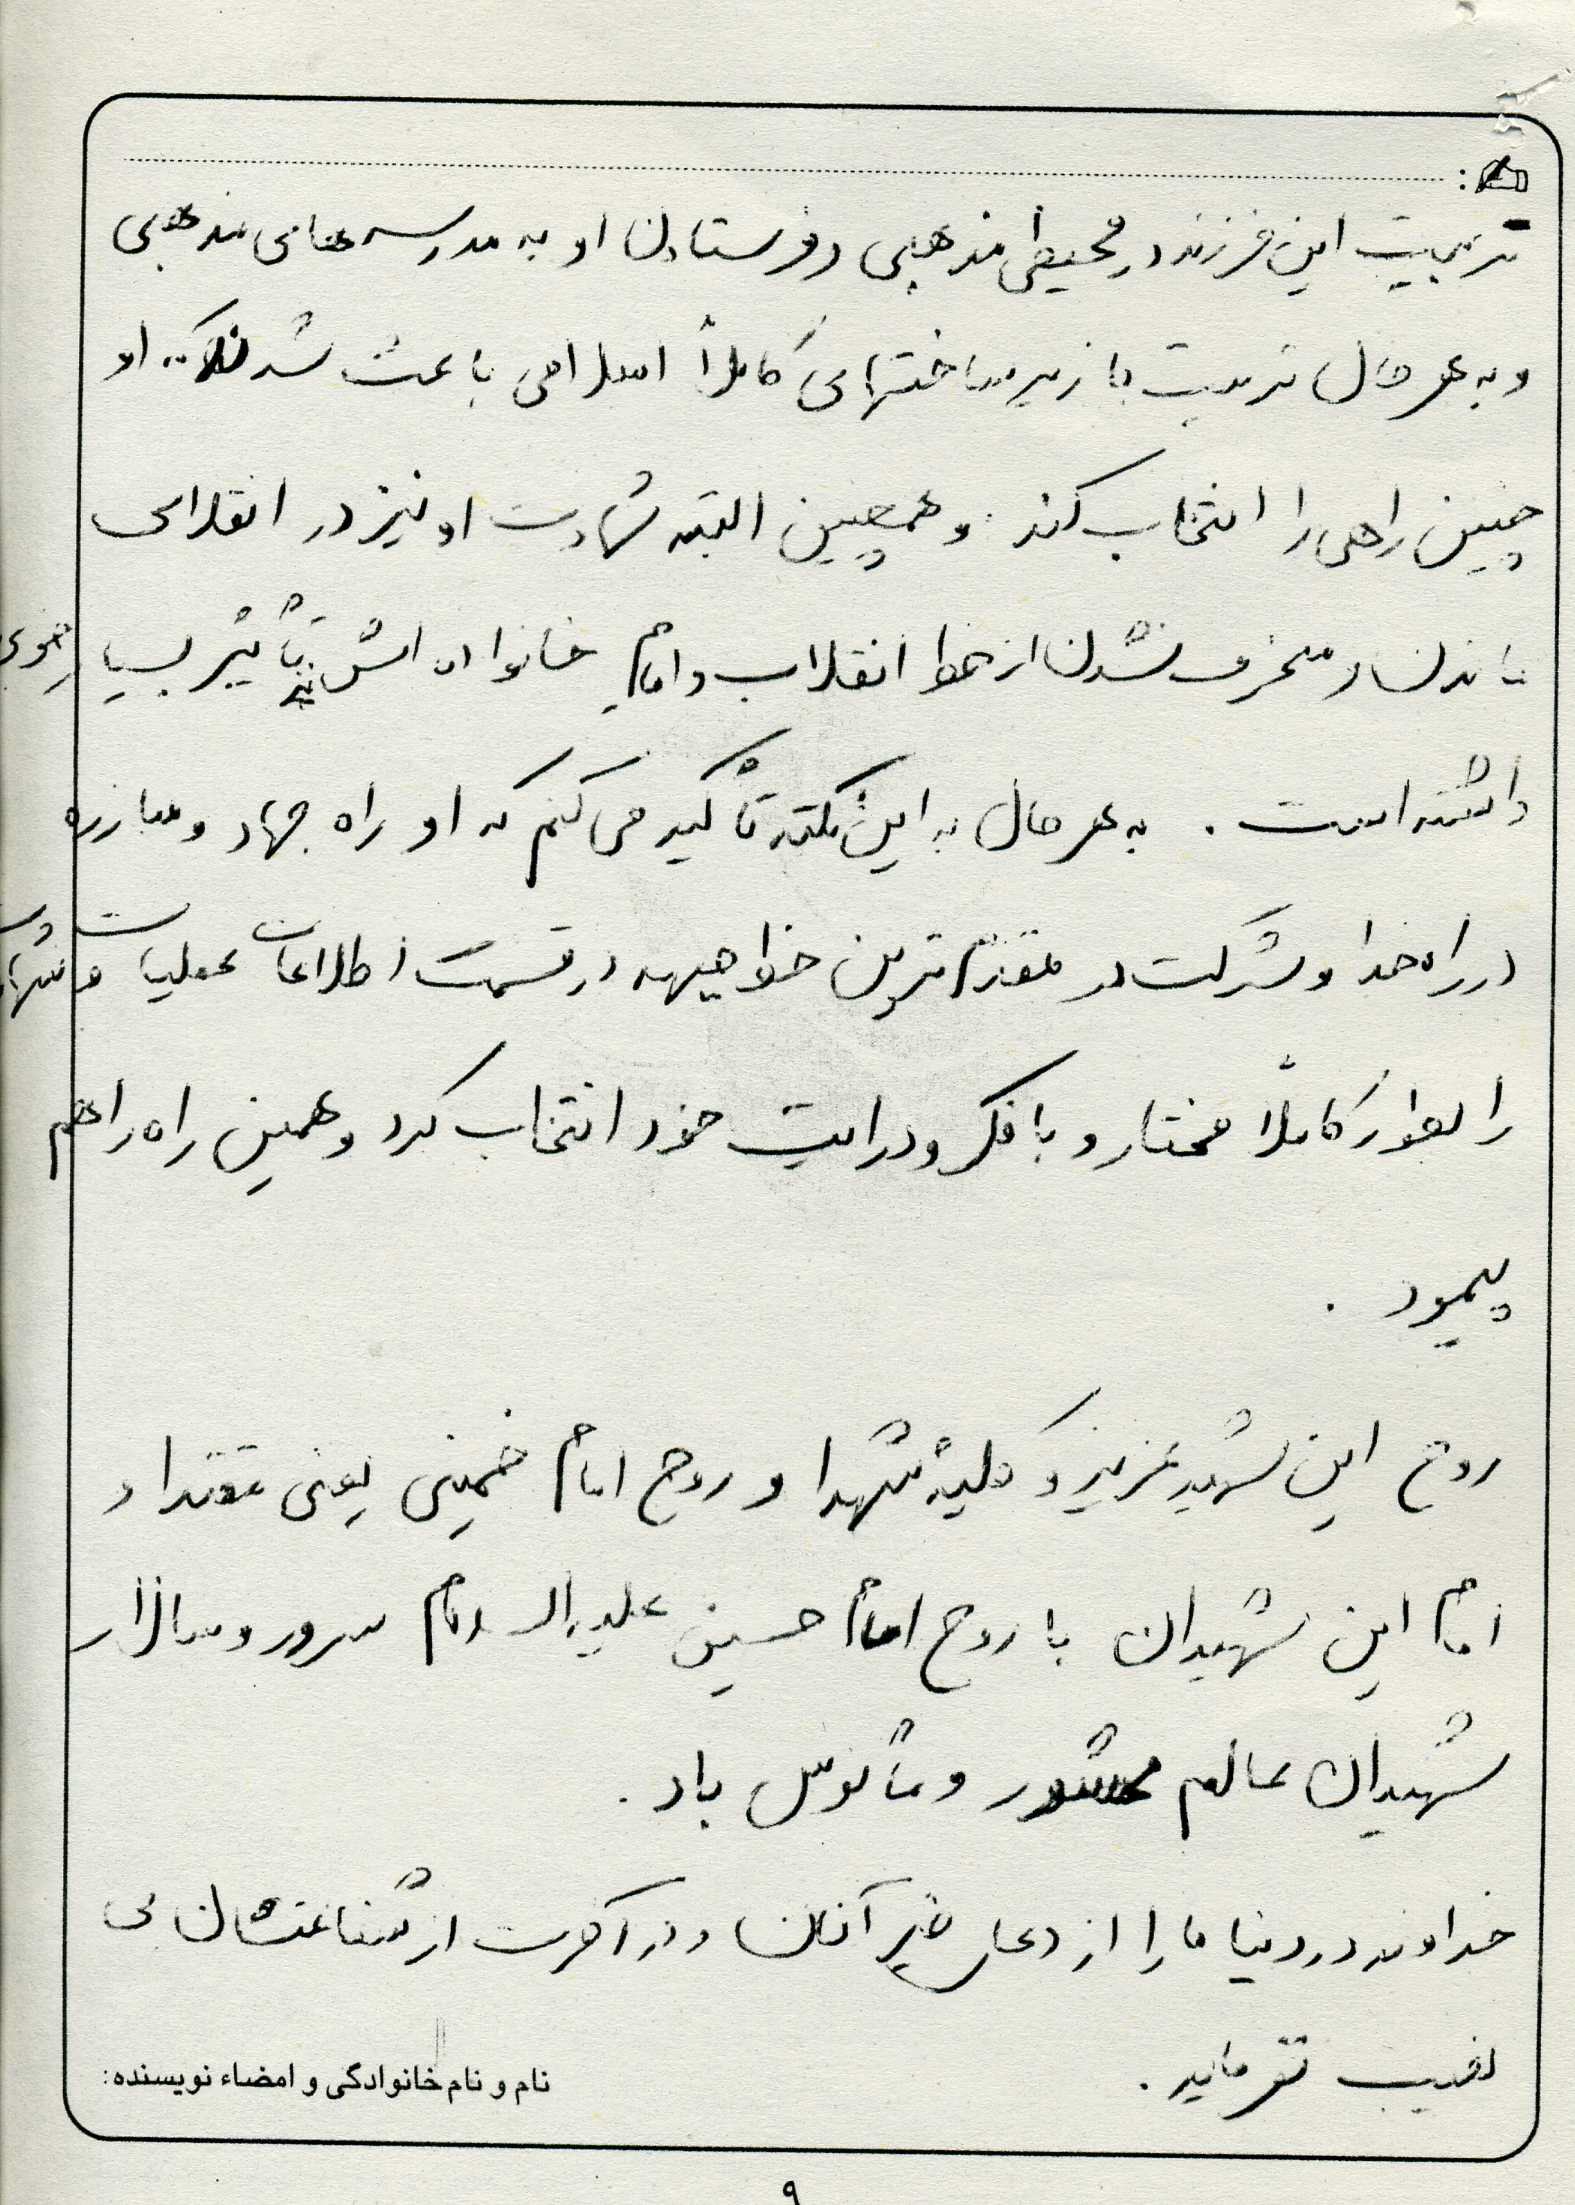 تربیت این فرزند در محیطی مذهبی و فرستادن او به مدرسه‌های مذهبی
و به هر حال تربیت با زیر ساختهای کاملاً اسلامی باعث شد که او
چنین راهی را انتخاب کند و همچنین البته شهادت او نیز در انقلابی
ماندن و منحرف نشدن از خط انقلاب و امام خانواده اش نیز تأثیر بسیار خوبی
داشته است . به هر حال به این نکته تأکید می کنم که او راه جهاد و مبارزه
در راه خدا و شرکت در مقدم ترین خط جبهه در قسمت اطلاعات عملیات و شهادت
را بطور کاملاً مختار و با فکر و درایت خود انتخاب کرد و همین راه را هم
پیمود .
روح این شهید عزیز و کلیه شهدا و روح امام خمینی یعنی مقتدا و
امام این شهیدان با روح امام حسین علیه السلام سرور و سالار
شهیدان عالم محشور و مأنوس باد .
خداوند در دنیا ما را از دعای خیر آنان و در آخرت از شفاعتشان بی
نصیب نفرماید .
نام و نام خانوادگی و امضاء نویسنده:
۹